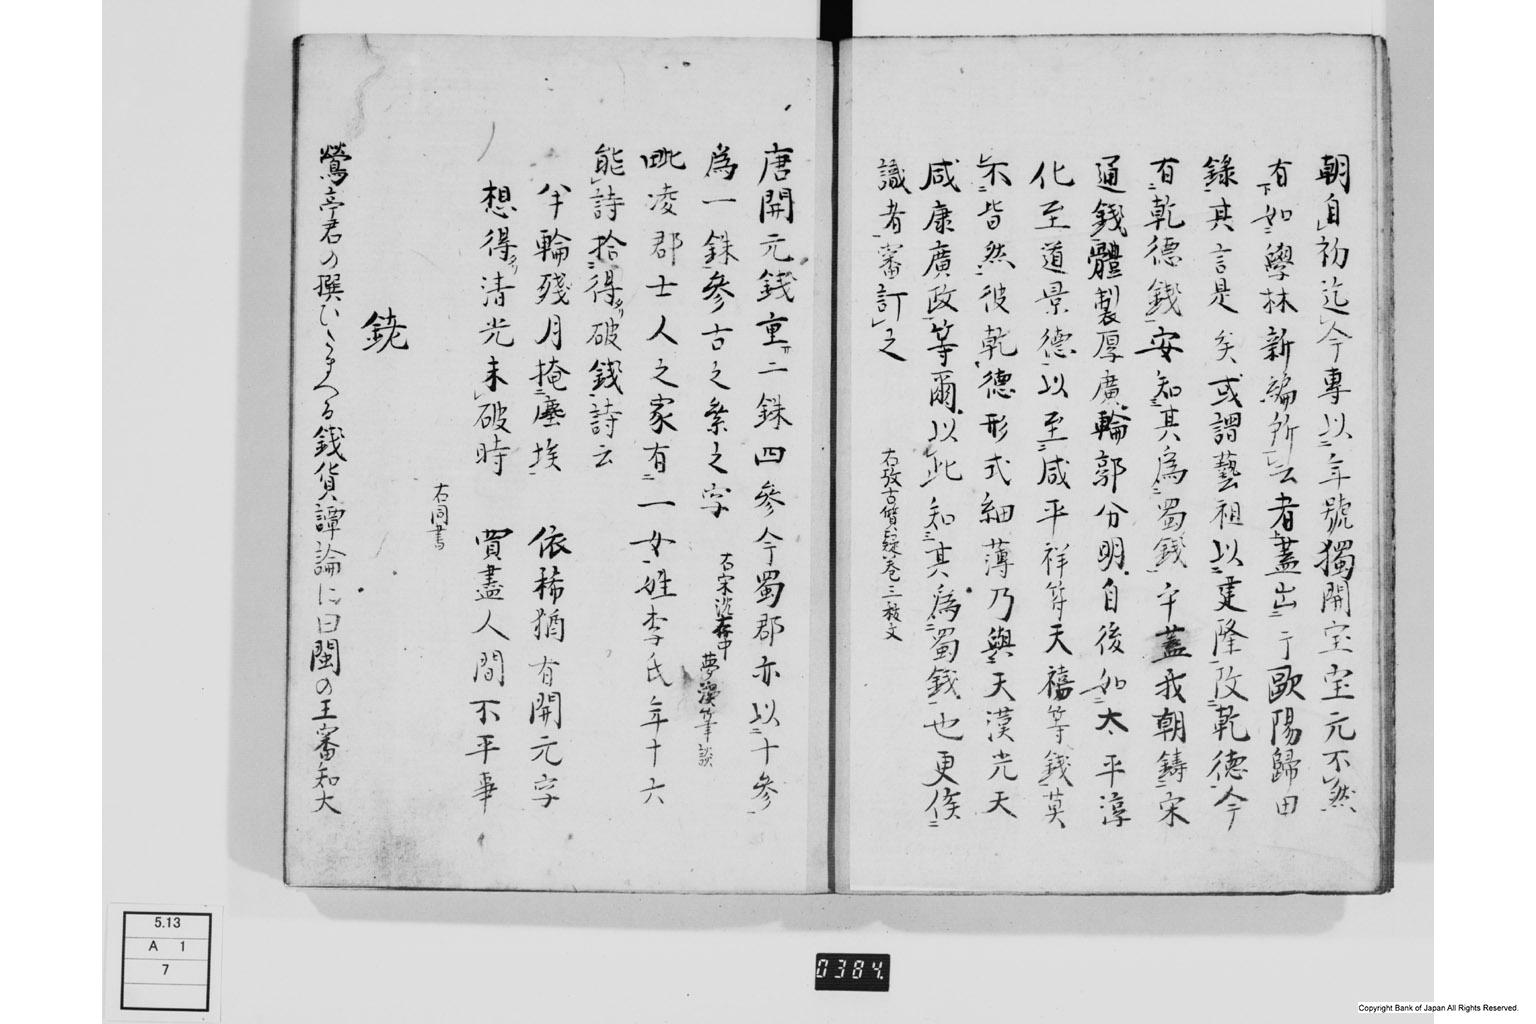 朝自初迄今專以年號獨開宝宝元不然
有如學林新編所云者蓋出于歐陽歸田
錄其言是矣或謂藝祖以建隆改乾德今
有乾德錢安知其爲蜀錢乎蓋我朝鑄宋
通錢體製厚廣輪郭分明自後如太平淳
化至道景德以至咸平祥符天禧等錢莫
不皆然彼乾德形式細薄乃與天漢光天
咸康廣政等爾以此知其爲蜀錢也更俟
識者審訂之
右攷古質疑卷三裁文
唐開元錢重二銖四參今蜀郡亦以十參
爲一銖參古之絫之字
右宋沈存中夢溪筆談
毗凌郡士人之家有一女姓李氏年十六
能詩拾得破錢詩云
半輪殘月掩塵埃 依稀猶有開元字
想得清光未破時 買盡人間不平事
右同書
銃
鶯亭君の撰ひたまへる錢貨譚論に曰閩の王審知大
5.13
A 1
7
0384.
Copyright Bank of Japan All Rights Reserved.